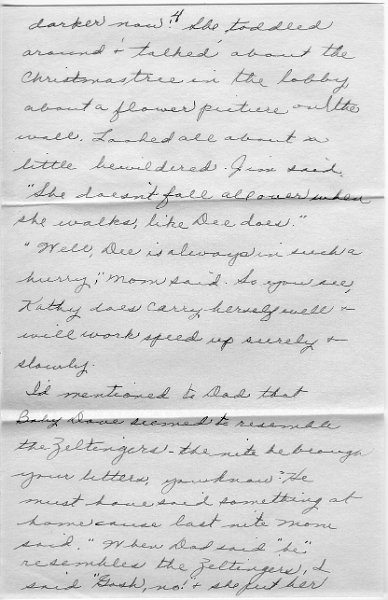 4
darker now. She toddled
around & "talked" about the
Christmas tree in the lobby,
about a flower picture on the
wall. Looked all about a
little bewildered. Jim said,
"She doesn't fall all over when
she walks, like Dee does."
"Well, Dee is always in such a
hurry," Mom said. So you see,
Kathy does carry herself well &
will work speed up surely &
slowly.
I'd mentioned to Dad that
Baby Dave seemed to resemble
the Zeltingers - the nite he brough
your letters, you know. He
must have said something at
home cause last nite Mom
said. "When Dad said "he"
resembles the Zeltingers, I
said "Gosh, no! & she put her